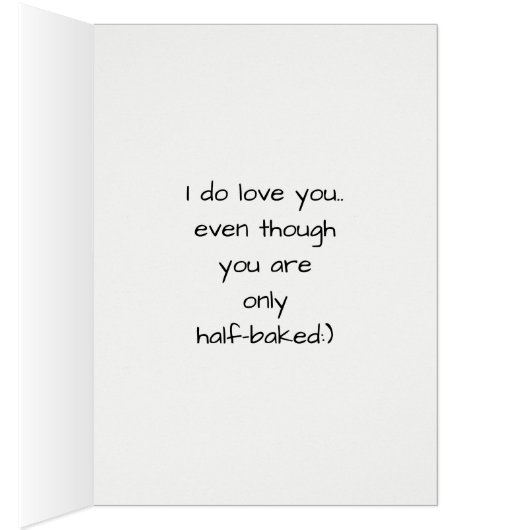 I do love you..
even though
you are
only
half-baked:)